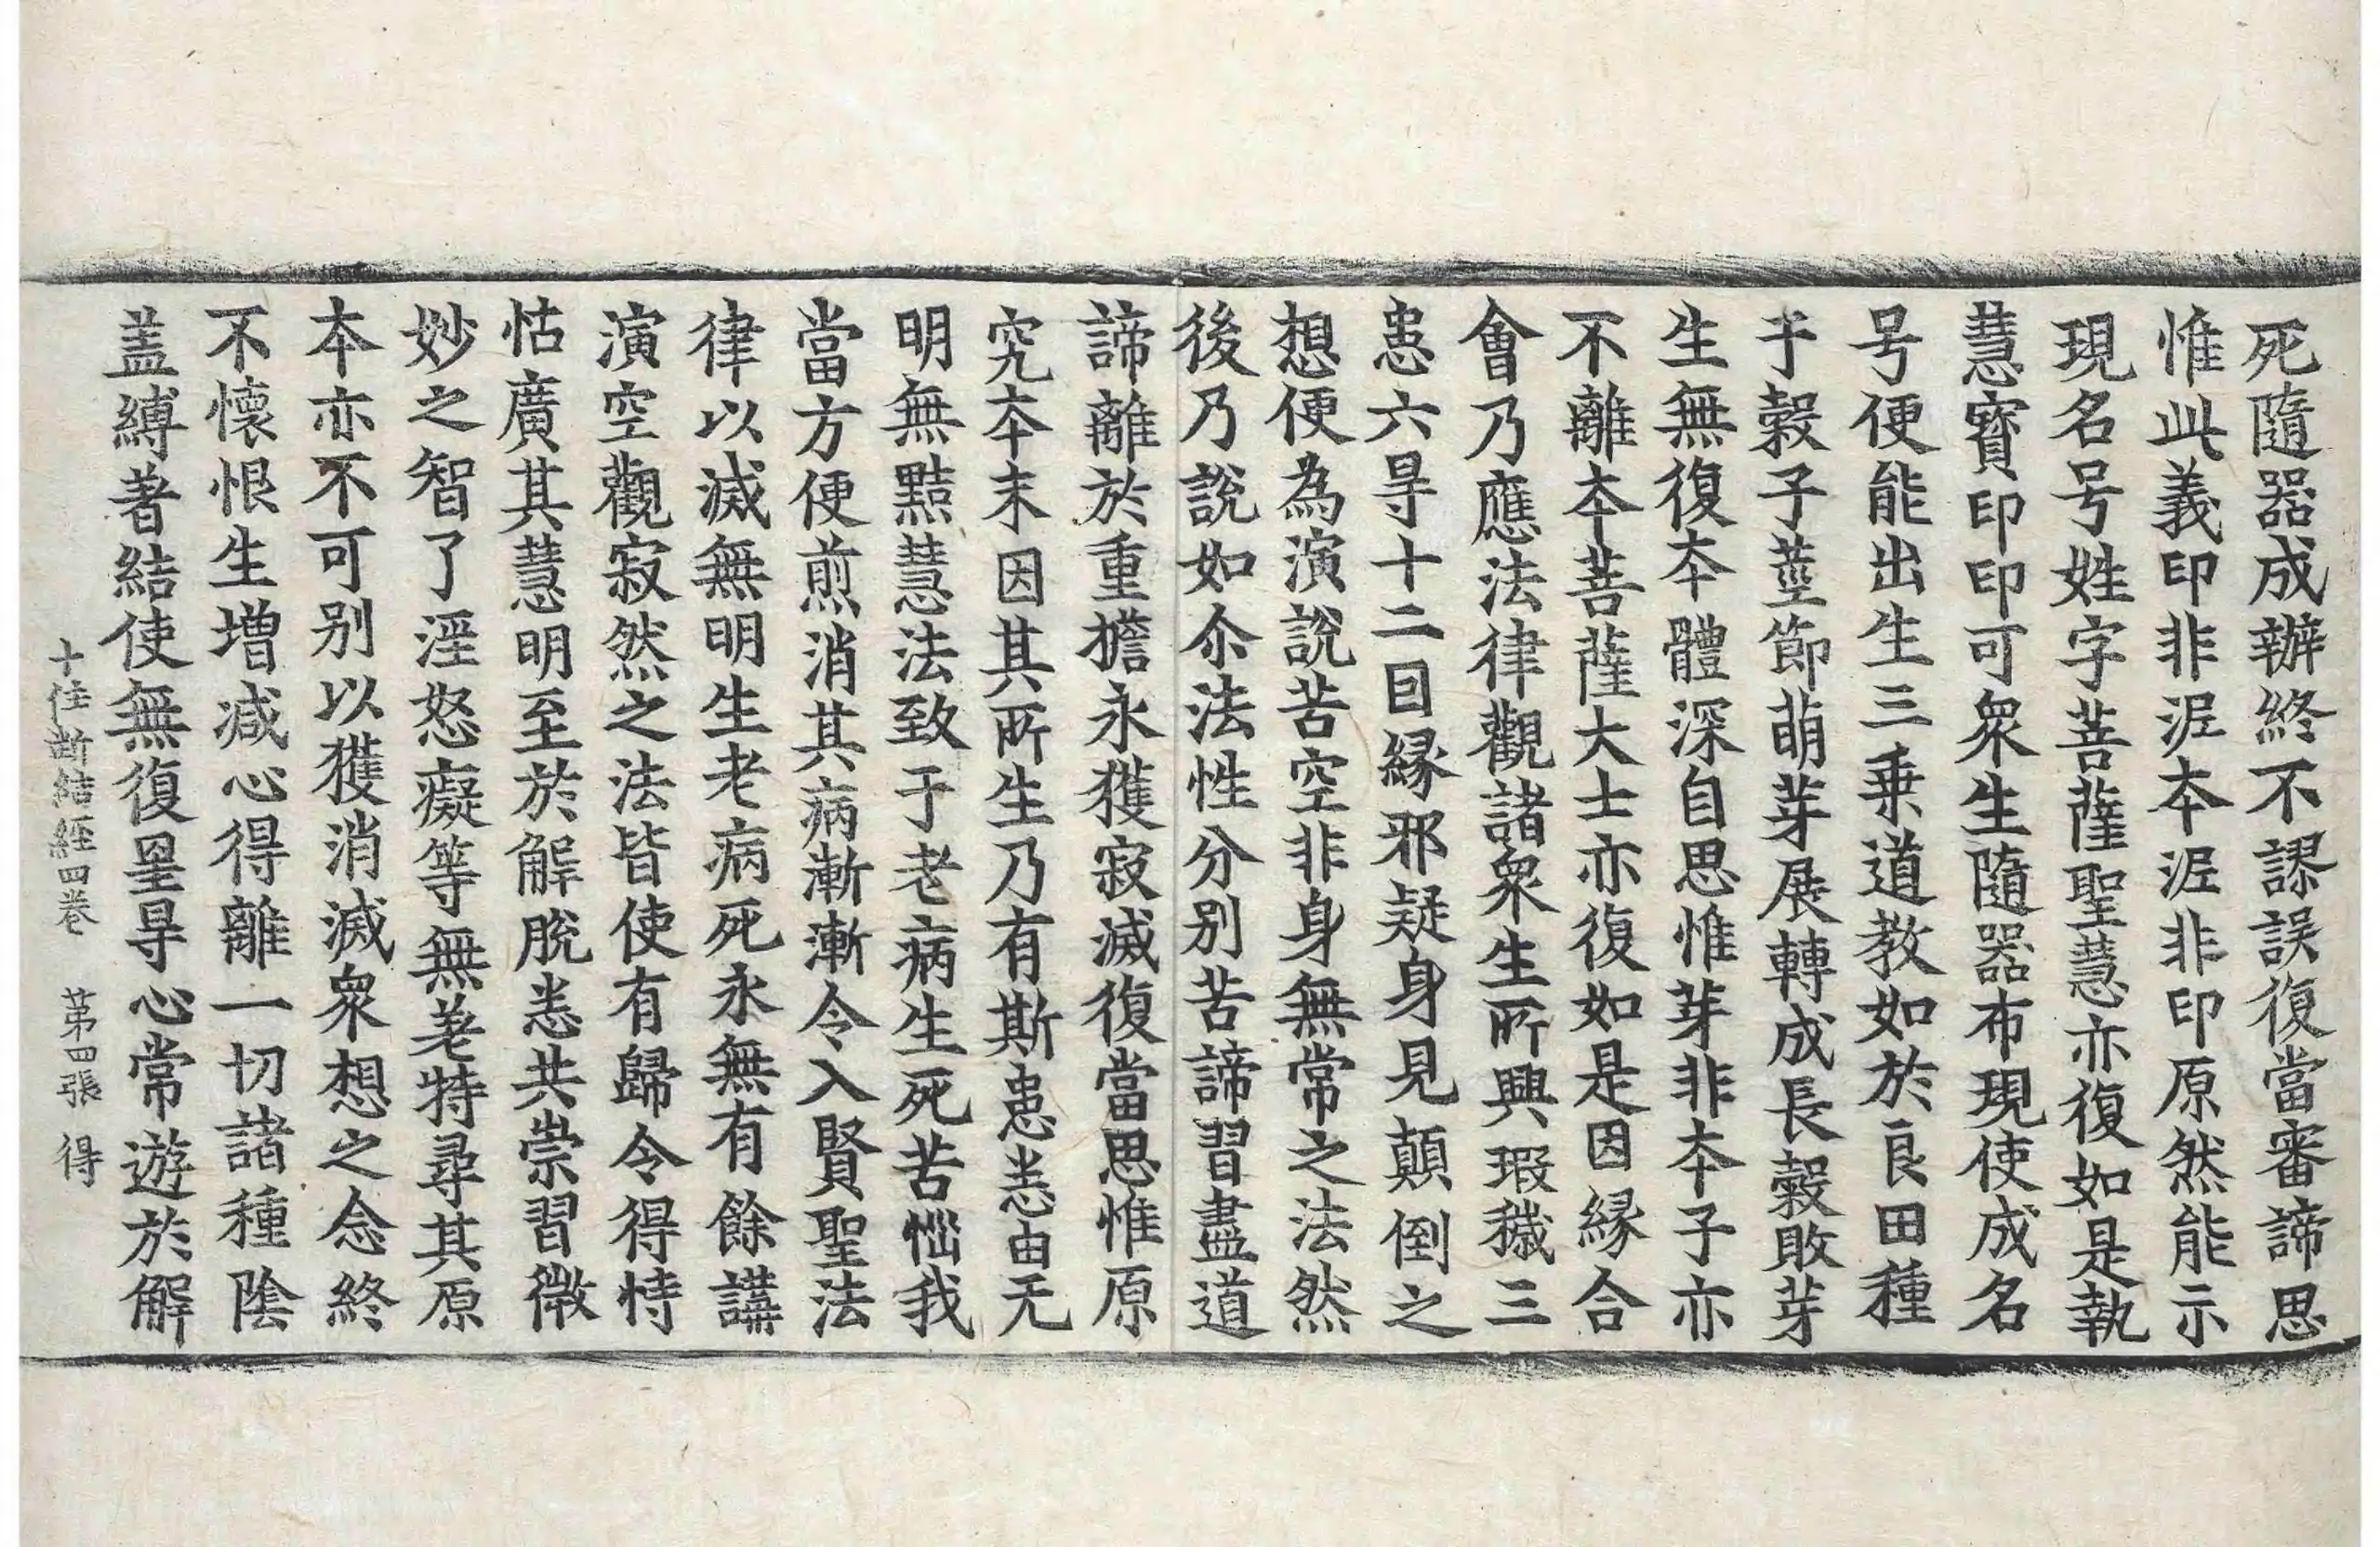 死隨器成辦終不謬誤復當審諦思
惟此義印非泥本泥非印原然能示
現名号姓字菩薩聖慧亦復如是執
慧寶印印可衆生隨器布現使成名
号便能出生三乗道教如於良田種
于穀子莖節萌芽展轉成長穀敗芽
生無復本體深自思惟芽非本子亦
不離本菩薩大士亦復如是因緣合
會乃應法律觀諸衆生所興瑕穢三
患六㝵十二因縁邪疑身見顛倒之
想便為演說苦空非身無常之法然
後乃說如尒法性分别苦諦習盡道
諦離於重擔永獲寂滅復當思惟原
究本末因其所生乃有斯患恙由无
明無黠慧法致于老病生死苦惱我
當方便煎消其病漸漸令入賢聖法
律以滅無明生老病死永無有餘講
演空觀寂然之法皆使有歸令得恃
怙廣其慧明至於解脫恙共崇習微
妙之智了婬怒癡等無差特尋其原
本亦不可别以獲消滅衆想之念終
不懷恨生增减心得離一切諸種陰
盖縛著結使無復罣㝵心常遊於解
十住斷結經四卷　第四張　得